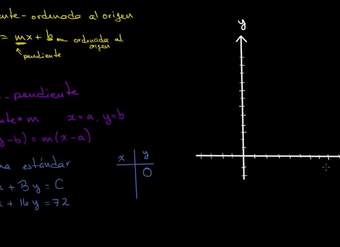 ente-ordenada al origen
= mx + b ← ordenada al origen
pendiente
- pendiente
m x=a, y=b
y-b) = m(x-a)
ma estándar
x + By = C
x + 16y = 72
x y
0
y